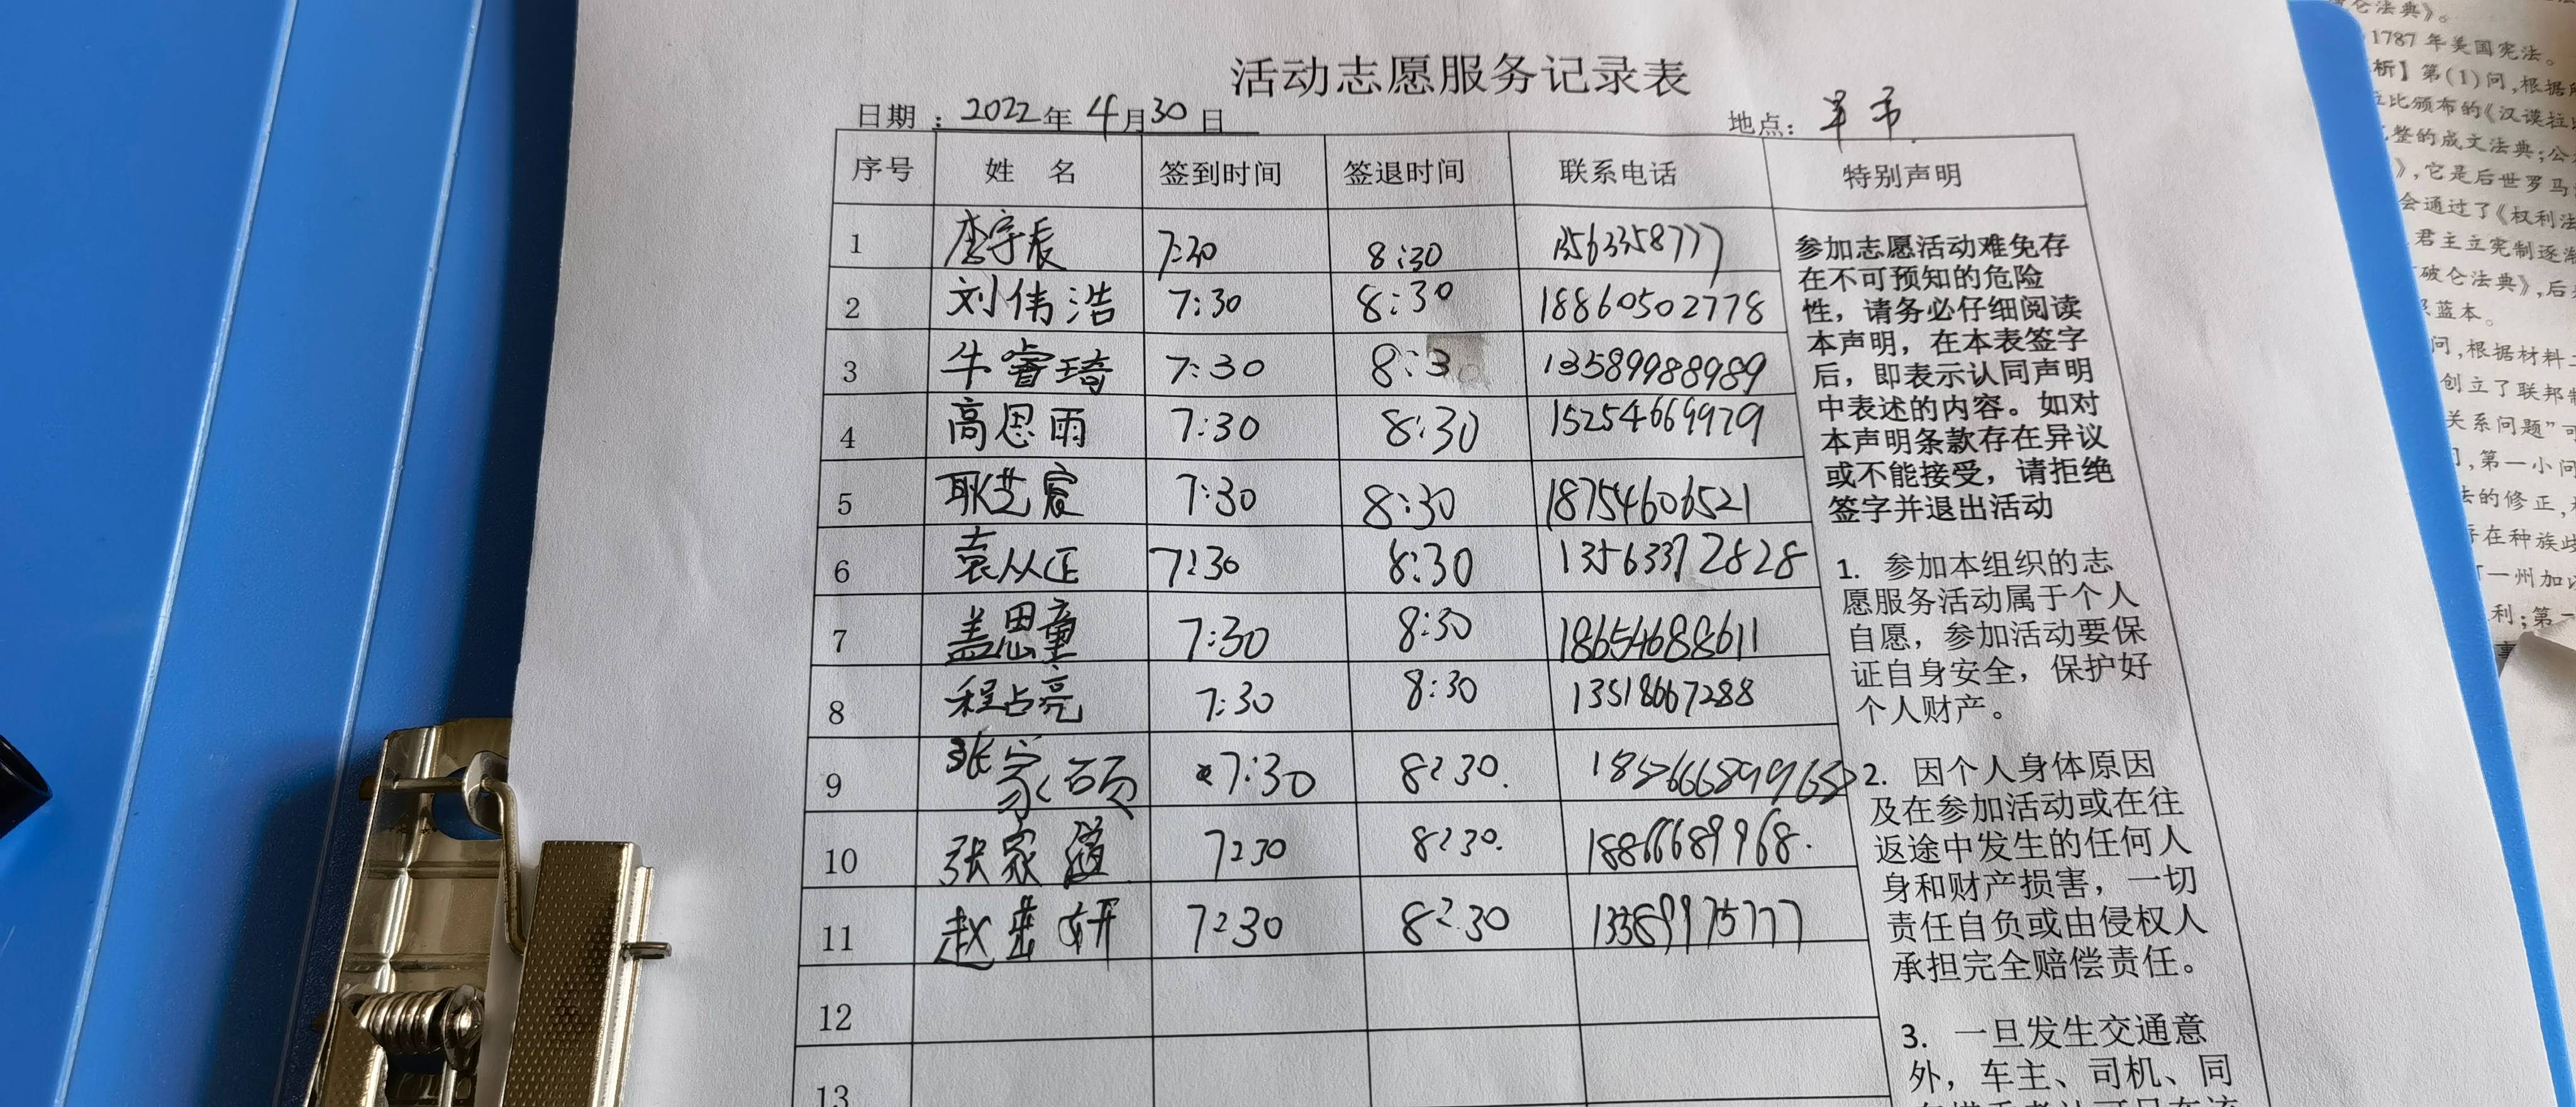 活动志愿服务记录表
日期：2022年4月30日 地点：羊市
序号 姓 名 签到时间 签退时间 联系电话 特别声明
1 李宇辰 7:30 8:30 13563358777
2 刘伟浩 7:30 8:30 18860502778
3 牛睿琦 7:30 8:30 13589988989
4 高思雨 7:30 8:30 15254669979
5 耿艺宸 7:30 8:30 18754606521
6 袁从正 7:30 8:30 13563372828
7 盖思童 7:30 8:30 18654688611
8 程占亮 7:30 8:30 13518667288
9 张家硕 7:30 8:30.
10 张家 7:30 8:30. 18866689968.
11 赵 妍 7:30 8:30 13589975777
12
13
参加志愿活动难免存
在不可预知的危险
性，请务必仔细阅读
本声明，在本表签字
后，即表示认同声明
中表述的内容。如对
本声明条款存在异议
或不能接受，请拒绝
签字并退出活动
1. 参加本组织的志
愿服务活动属于个人
自愿，参加活动要保
证自身安全，保护好
个人财产。
2. 因个人身体原因
及在参加活动或在往
返途中发生的任何人
身和财产损害，一切
责任自负或由侵权人
承担完全赔偿责任。
3. 一旦发生交通意
外，车主、司机、同
仑法典》。
1787年美国宪法。
析】第(1)问，根据
比颁布的《汉谟拉
整的成文法典；公
》，它是后世罗马
会通过了《权利法
君主立宪制逐渐
破仑法典》，后
蓝本。
问，根据材料
创立了联邦制
关系问题”可
，第一小问
法的修正，
存在种族歧
“一州加
利；第一